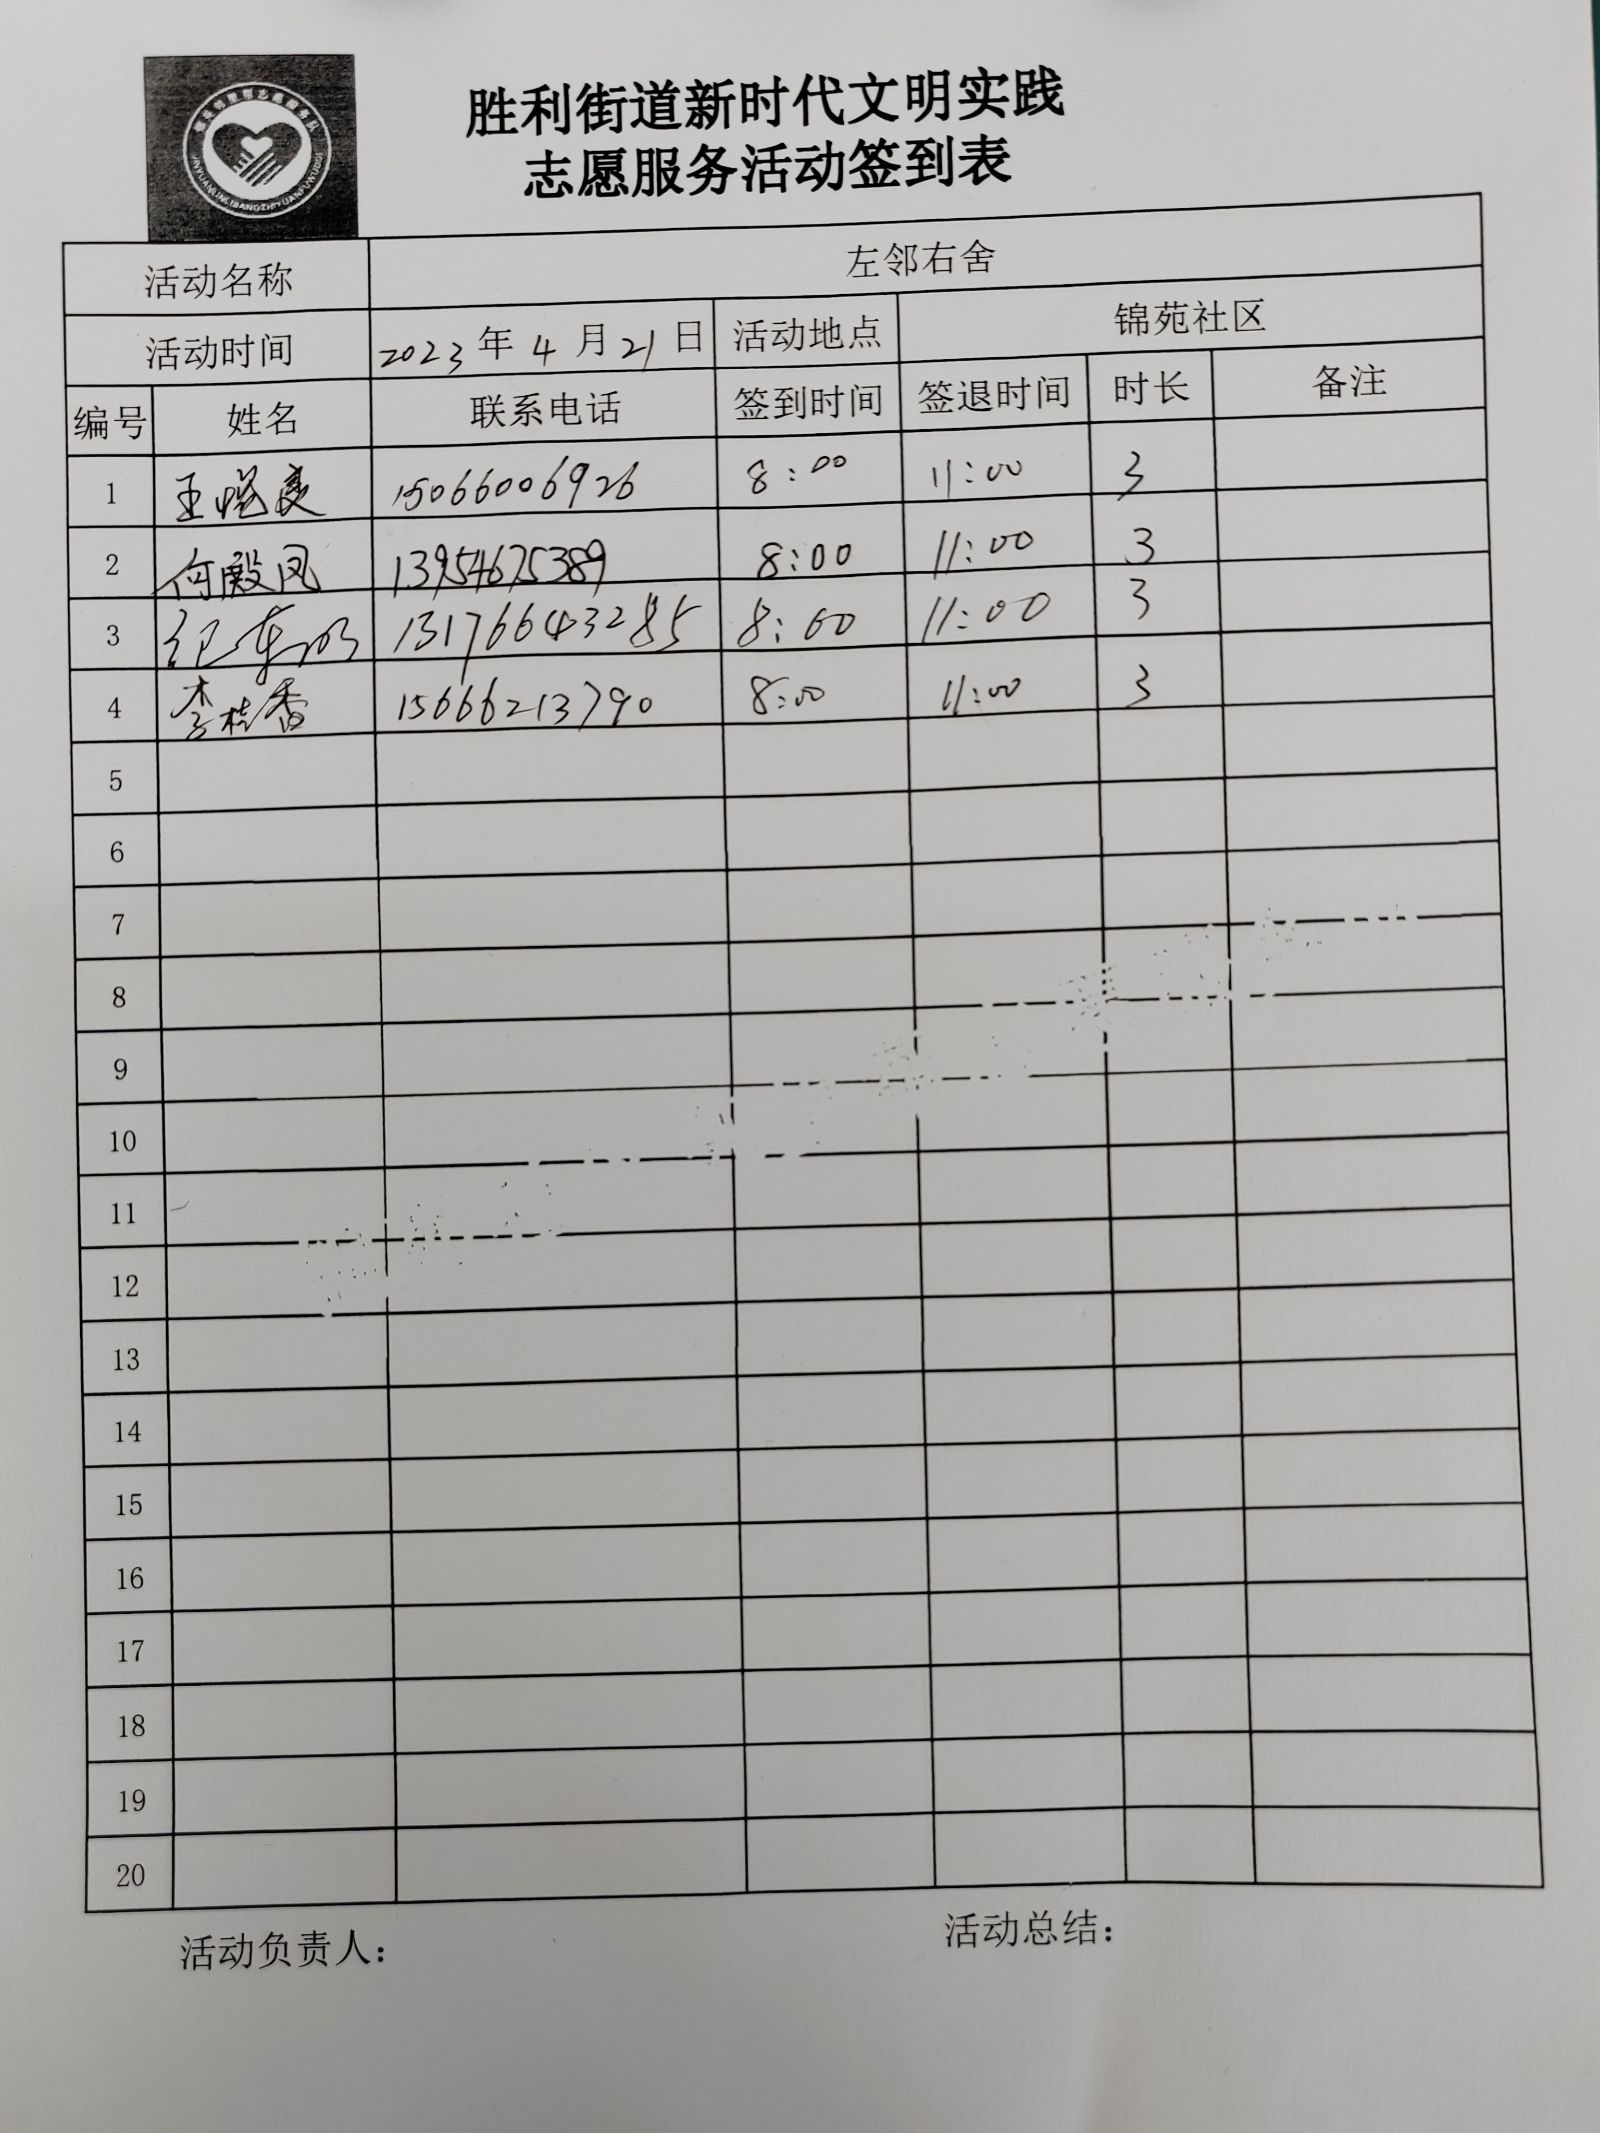 胜利街道新时代文明实践
志愿服务活动签到表
活动名称 左邻右舍
活动时间 2023年4月21日 活动地点 锦苑社区
编号 姓名 联系电话 签到时间 签退时间 时长 备注
1 王 15066006926 8:00 11:00 3
2 何殿凤 13954675389 8:00 11:00 3
3 纪东明 13176643285 8:00 11:00 3
4 李桂香 15666213790 8:00 11:00 3
5
6
7
8
9
10
11
12
13
14
15
16
17
18
19
20
活动负责人： 活动总结：